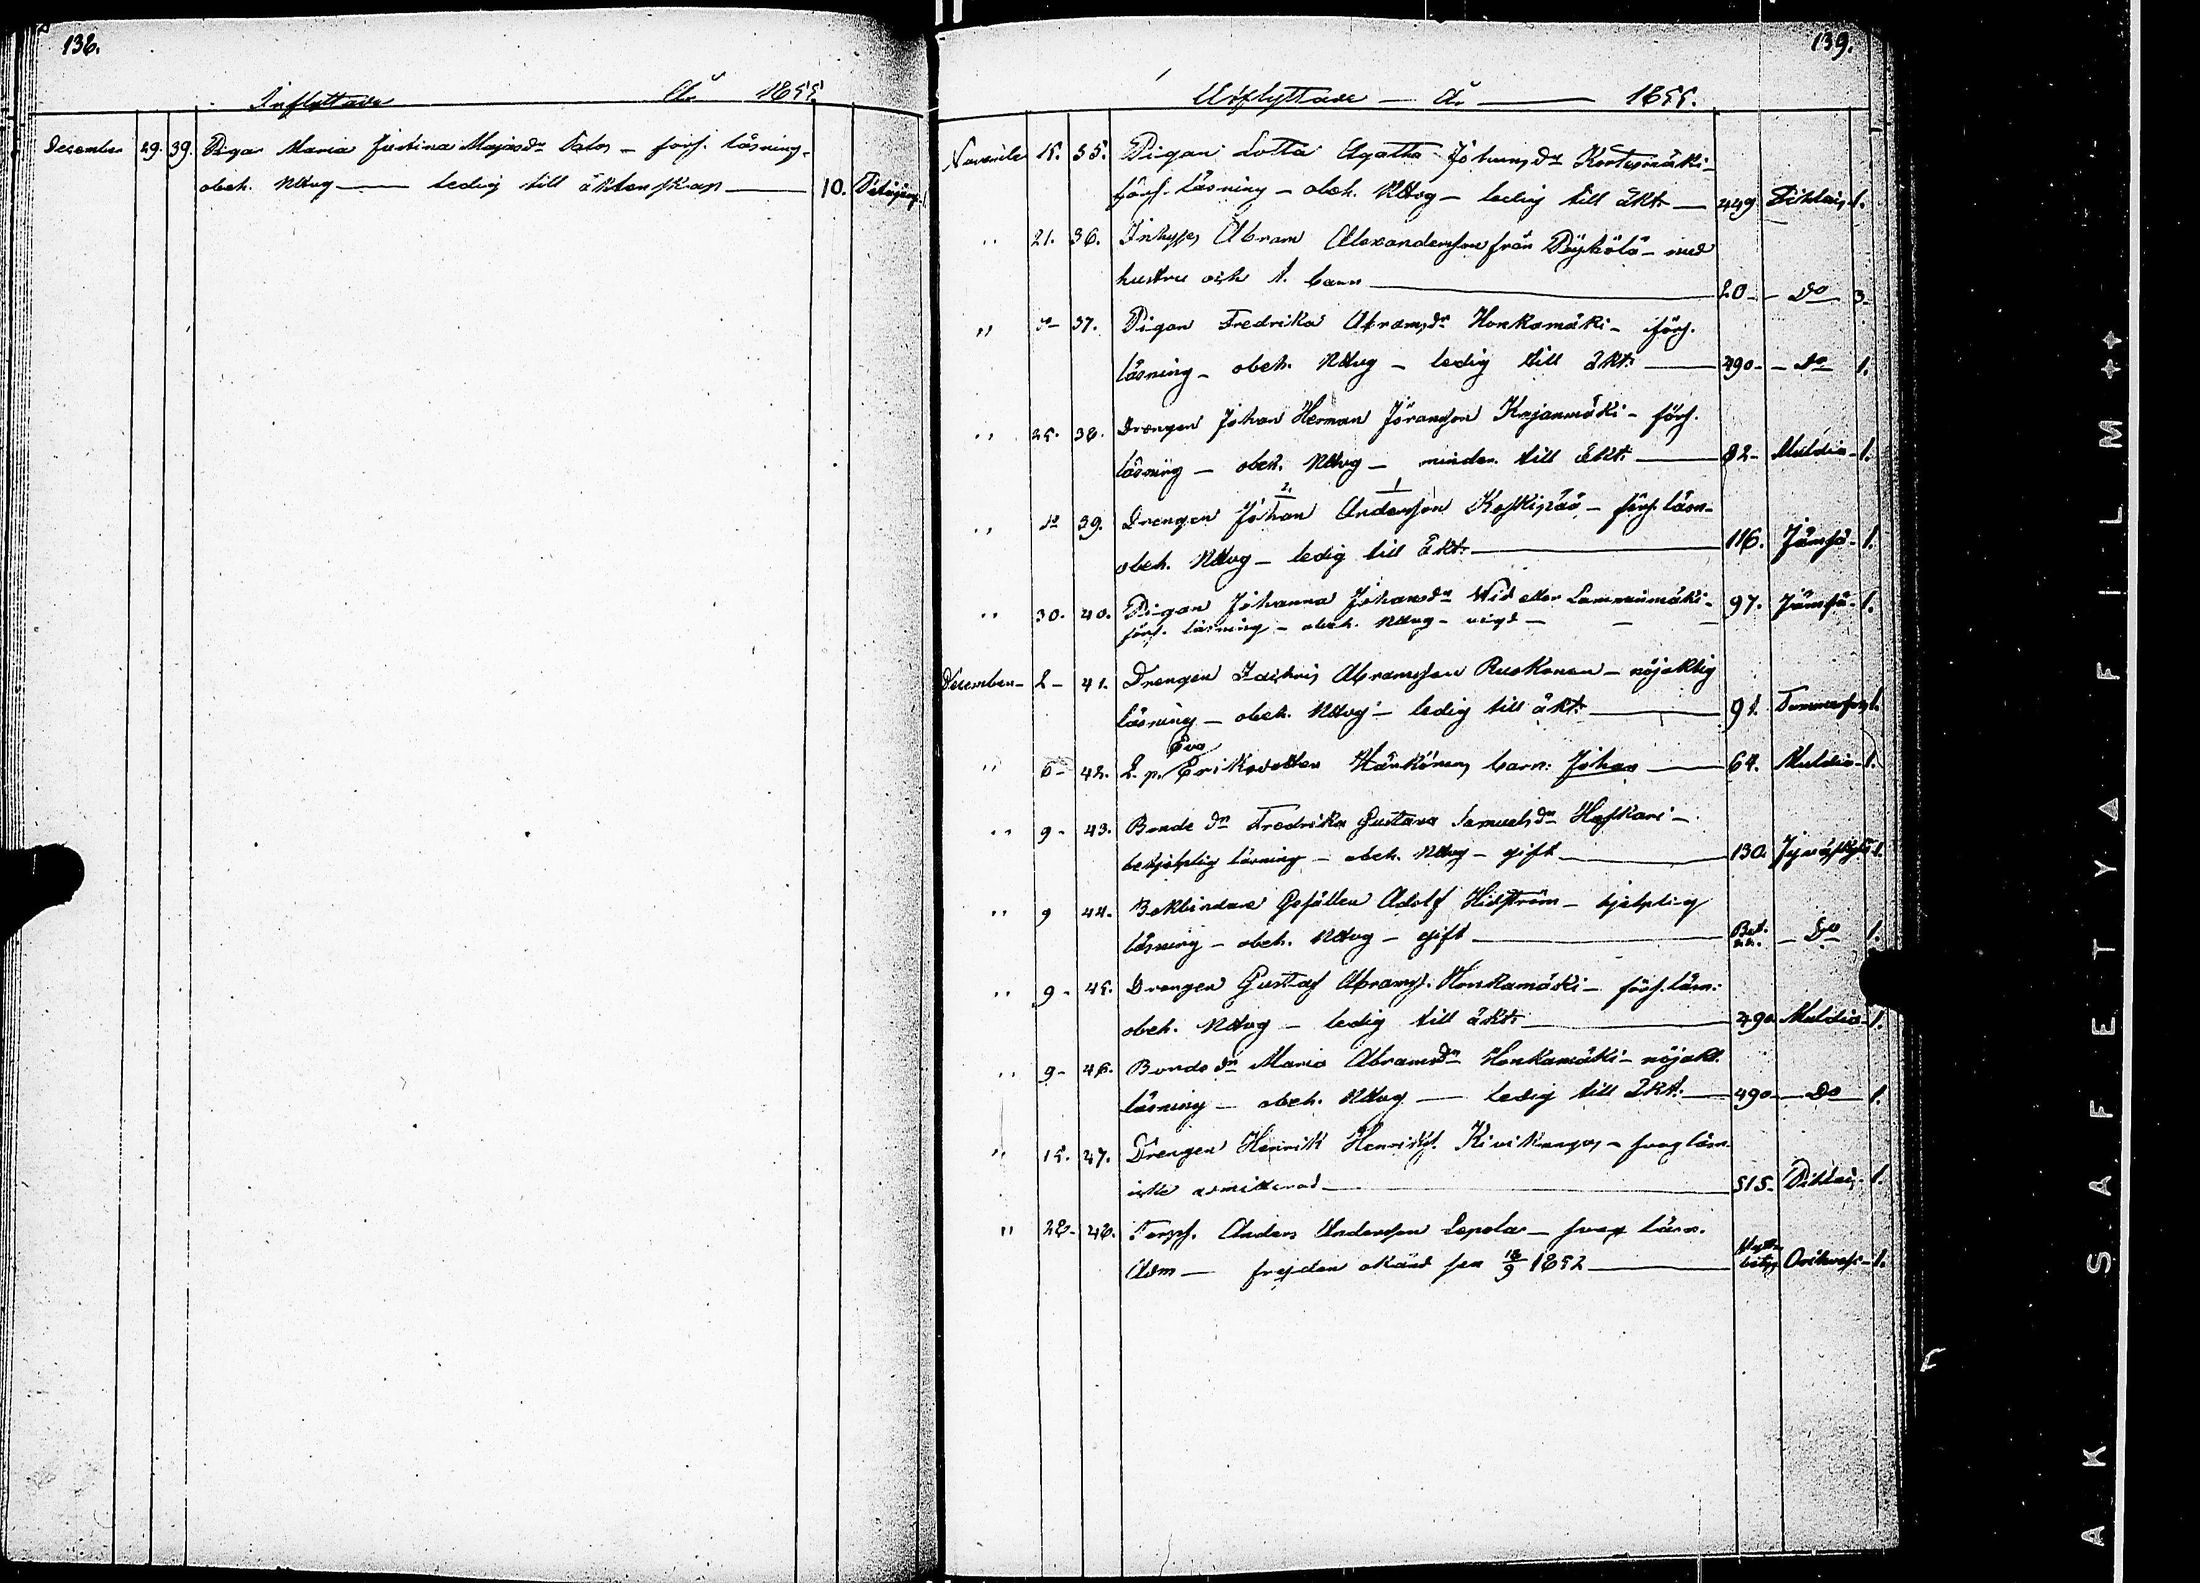 138.
Inflyttade År 1855.
December 29. 39. Pigan Maria Justina Majasdr Salos - förs. läsning -
obeh. Nttvg — ledig till äktenskap — 10. Petäjäv.
139.
Utflyttade — År — 1855.
Novemb. 15. 35. Pigan Lotta Agatha Johansdr Kortesmäki -
förs. läsning - obeh. Nttvg - ledig till äkt. — 449 Pihlaj. 1.
" 21. 36. Inhyses Abram Alexandersson från Pöykölä - med
hustru och 1. barn — 20 - Do 3.
" Do 37. Pigan Fredrika Abramsdr Honkamäki - förs.
läsning - obeh. Nttvg - ledig till äkt. — 490 - Do 1.
" 25. 38. Drengen Johan Herman Göransson Kojanmäki - förs.
läsning - obeh. Nttvg - minder. till äkt. — 82 - Muldia - 1.
" Do 39. Drengen Johan Andersson Koskipää - förs. läsn.
obeh. Nttvg - ledig till äkt. — 116. Jämsä - 1.
" 30. 40. Pigan Johanna Johansdr Wid eller Lamminmäki - 97. Jämsä - 1.
förs. läsning - obeh. Nttvg - vigd -
December - 2 - 41. Drengen Zachris Abramsson Ruokonen - nöjaktig
läsning - obeh. Nttvg - ledig till äkt. — 91. 1.
Eva
" 6 - 42. L. p. Eriksdotter Hänkönens barn: Johan — 64. Muldia - 1.
" 9 - 43. Bonde dr Fredrika Gustava Samuelsdr Hoskari -
behjelplig läsning - obeh. Nttvg - gift — 130. Jyväskylä 1.
" 9 44. Bokbindare Gesällen Adolf Hidström - hjelplig
läsning - obeh. Nttvg - gift — - Do 1.
" 9 - 45. Drengen Gustaf Abrams. Honkamäki - förs. läsn.
obeh. Nttvg - ledig till äkt. — 490 Muldia - 1.
" 9 - 46. Bonde dr Maria Abramsdr Honkamäki - nöjakt.
läsning - obeh. Nttvg — ledig till äkt. — 490 — Do — 1.
" 15. 47. Drengen Henrik Henriks. Kivikangas - svag läsn.
icke admitterad — 515. Pihlaj. 1.
" 28 - 48. Torps. Anders Andersson Lepola - svag läsn.
Adm — frejden okänd sen 18/9 1852 — Orihvesi - 1.
AK SAFETY ▲ FILM